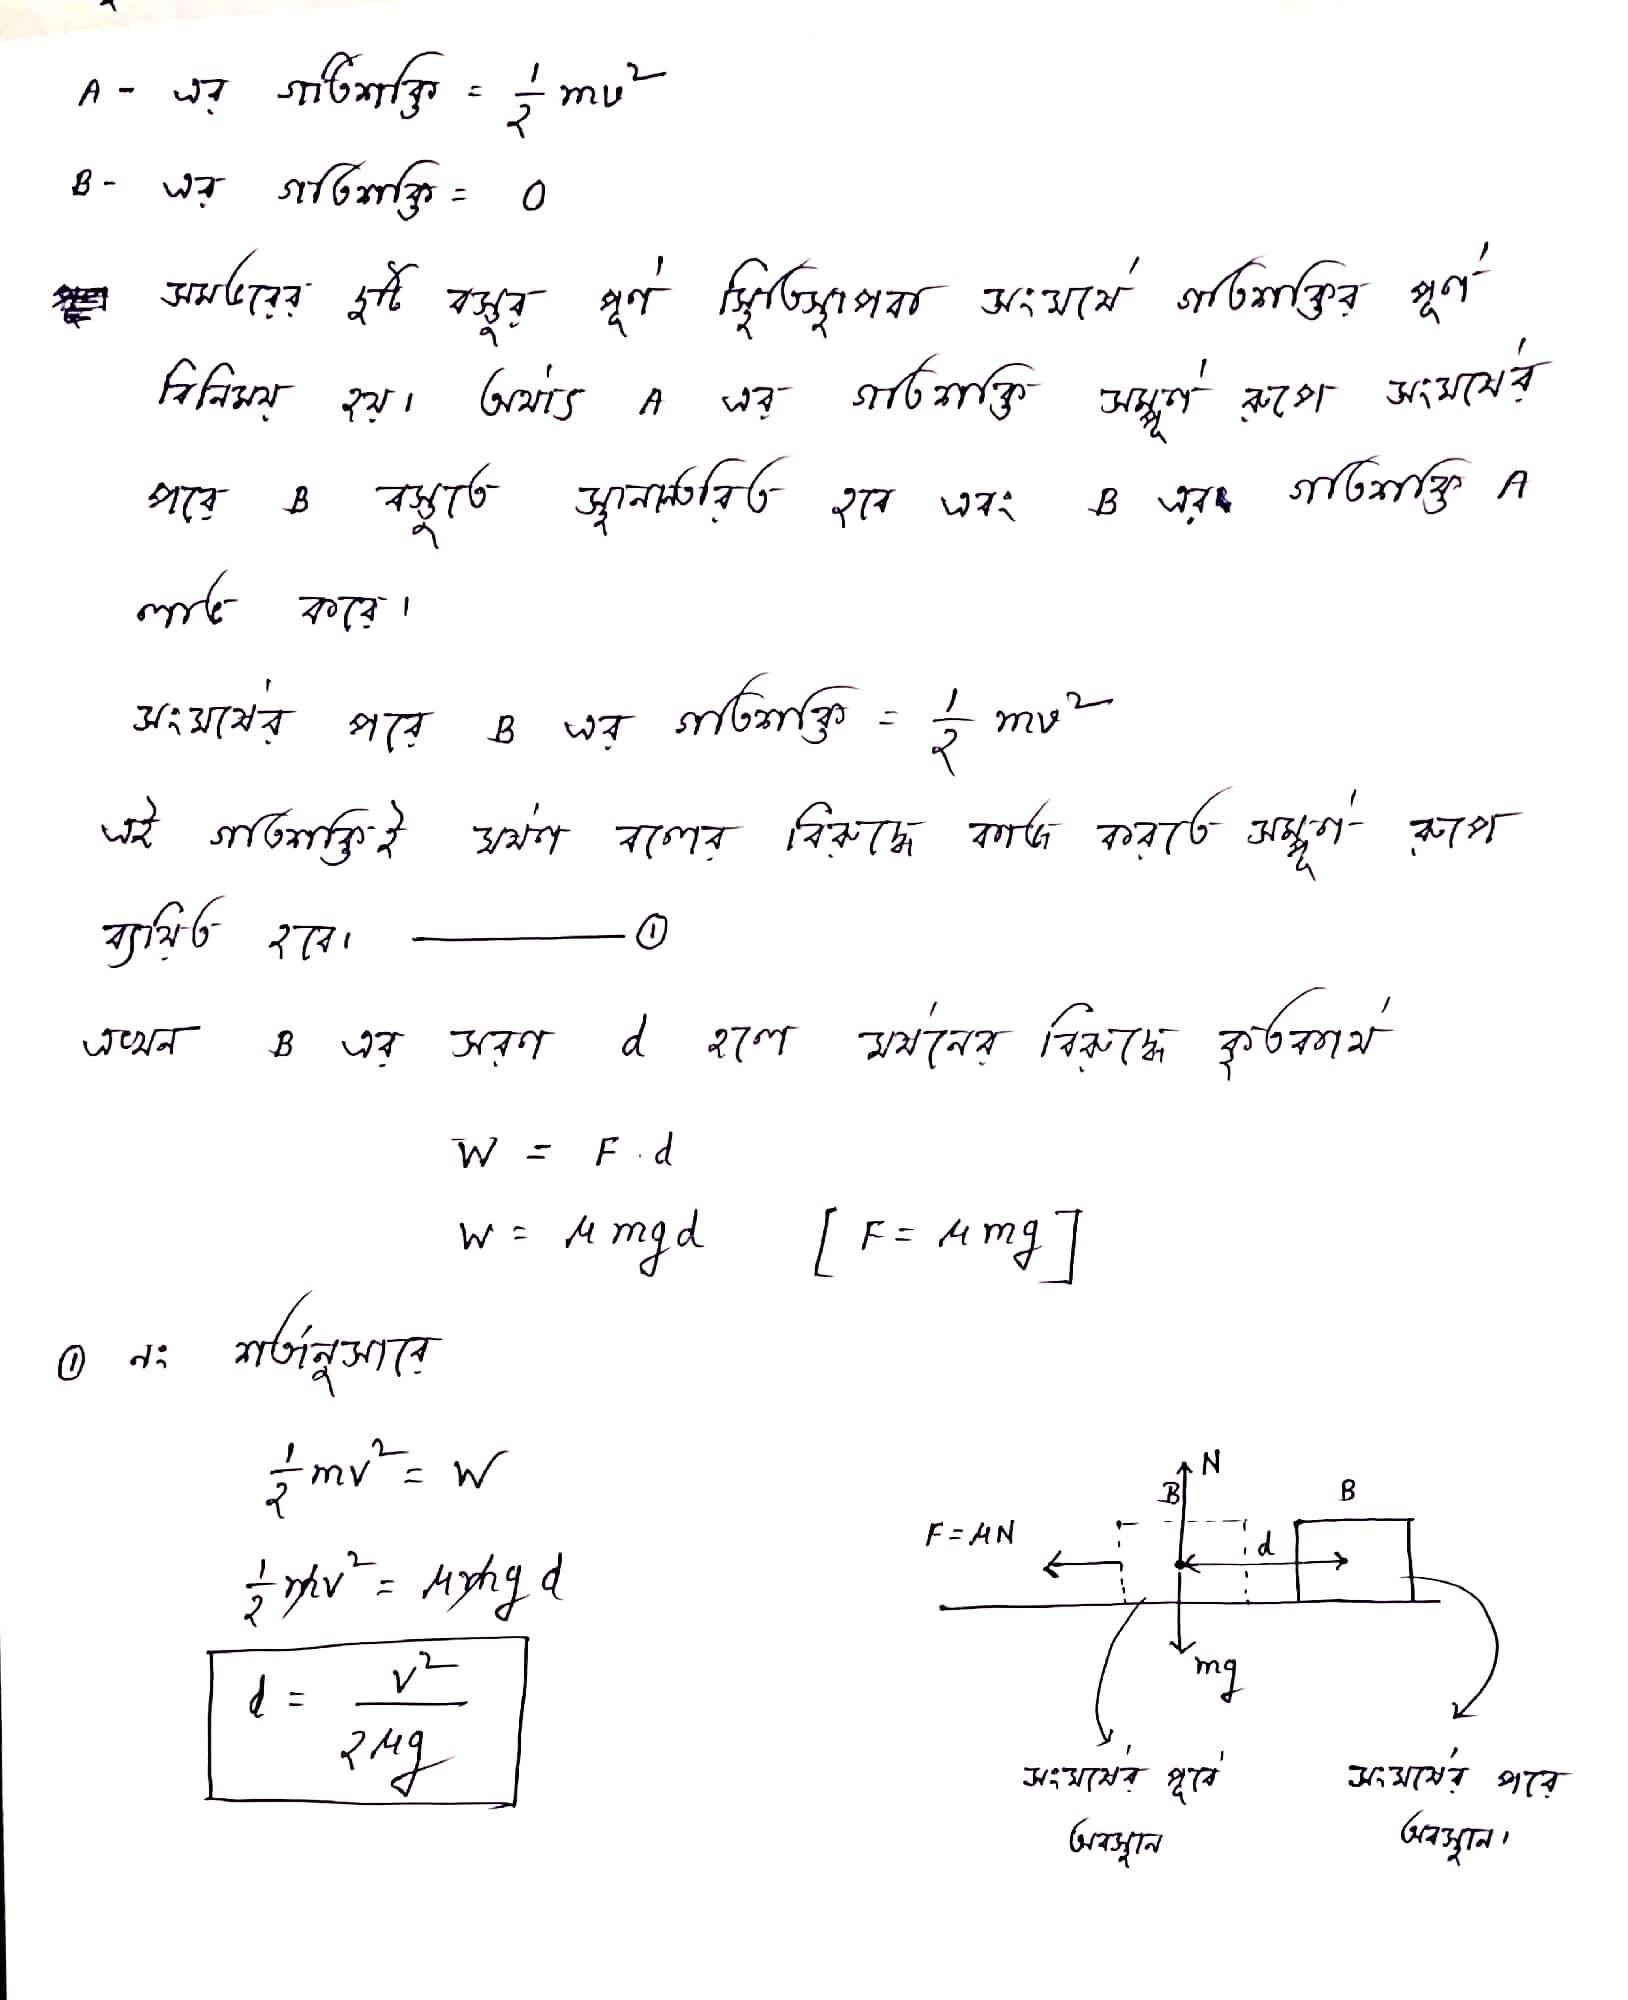 A - এর গতিশক্তি = 1/2 mv²
B - এর গতিশক্তি = 0
সমভরের দুটি বস্তুর পূর্ণ স্থিতিস্থাপক সংঘর্ষে গতিশক্তির পূর্ণ
বিনিময় হয়। অর্থাৎ A এর গতিশক্তি সম্পূর্ণ রূপে সংঘর্ষের
পরে B বস্তুতে স্থানান্তরিত হবে এবং B এর গতিশক্তি A
লাভ করে।
সংঘর্ষের পরে B এর গতিশক্তি = 1/2 mv²
এই গতিশক্তিই ঘর্ষণ বলের বিরুদ্ধে কাজ করতে সম্পূর্ণ রূপে
ব্যয়িত হবে। ———— ①
এখন B এর সরণ d হলে ঘর্ষনের বিরুদ্ধে কৃতকার্য
W = F . d
W = μmgd [F = μmg]
① নং শর্তানুসারে
1/2 mv² = W
1/2 mv² = μmgd
d = v² / 2μg
N
B
B
F = μN
d
mg
সংঘর্ষের পূর্বে
অবস্থান
সংঘর্ষের পরে
অবস্থান।